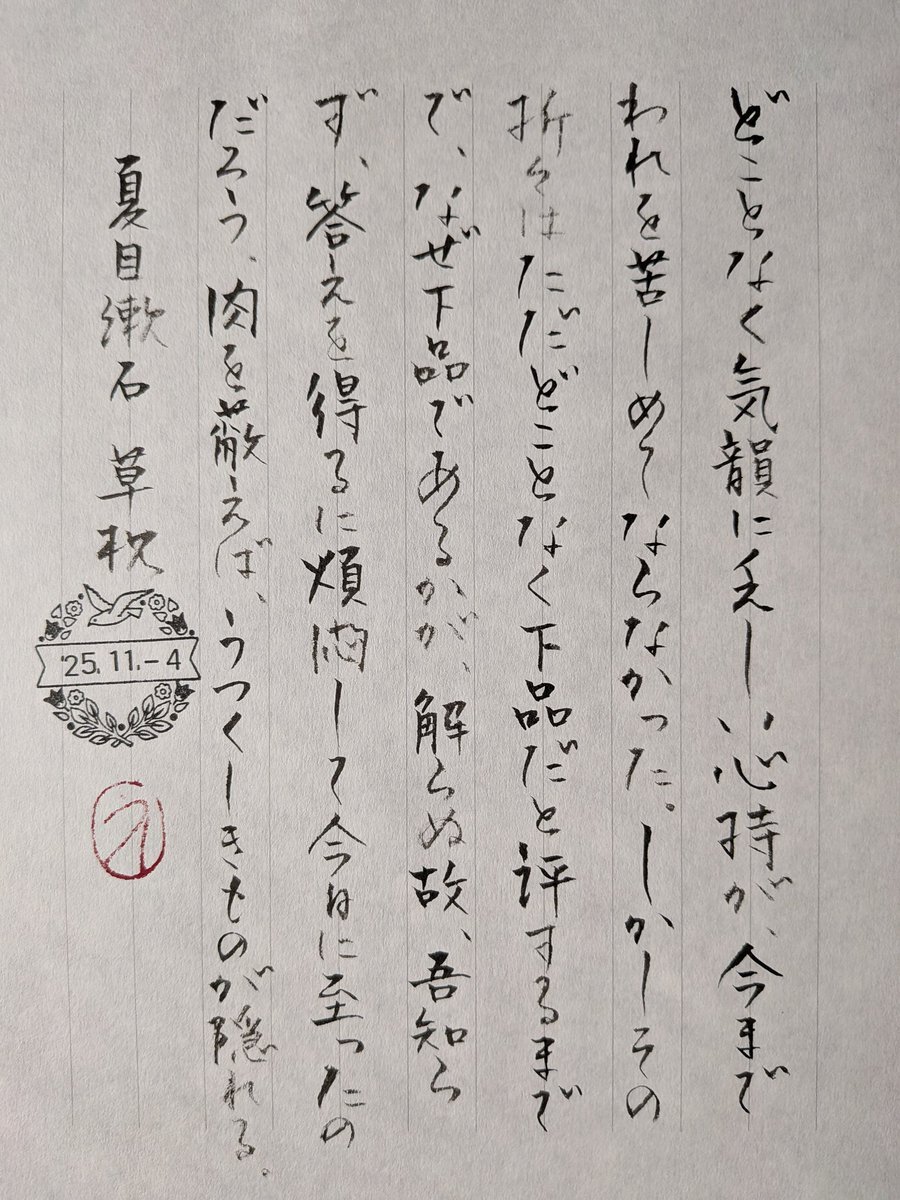 どことなく気韻に乏しい心持が、今まで
われを苦しめてならなかった。しかしその
折々はただどことなく下品だと評するまで
で、なぜ下品であるかが、解らぬ故、吾知ら
ず、答えを得るに煩悶して今日に至ったの
だろう、肉を蔽えば、うつくしきものが隠れる。
夏目漱石 草枕
'25.11.-4